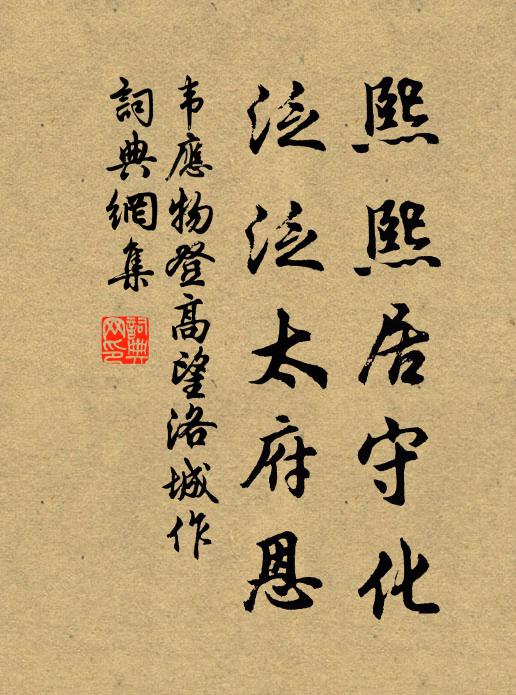 熙熙居守化
泛泛太府恩
韦應物登高望洛城作
詞典網集
詞典
网印